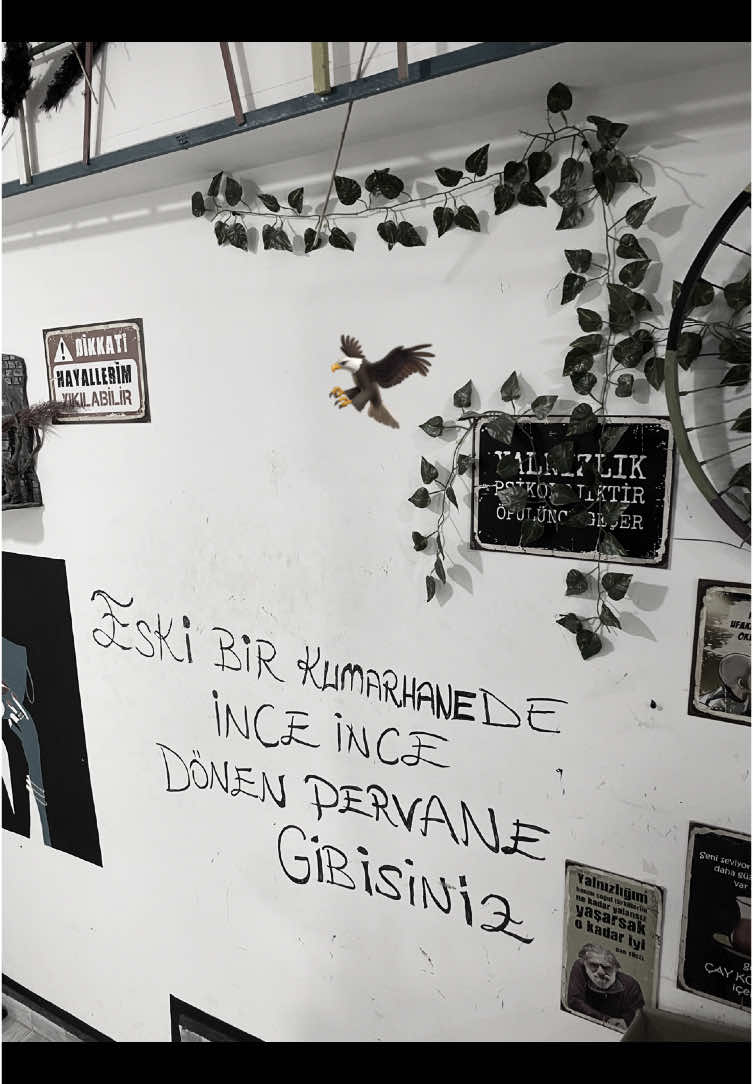 DİKKAT!
HAYALLERİM
YIKILABİLİR
YALNIZLIK
PSİKOLOJİKTİR
ÖPÜLÜNCE GEÇER
ESKİ BİR KUMARHANEDE
İNCE İNCE
DÖNEN PERVANE
GİBİSİNİZ
Yalnızlığım
ne kadar yalansız
yaşarsak
o kadar iyi
Can YÜCEL
Seni seviyor
daha güz
var
ÇAY KO
içe
UFAK